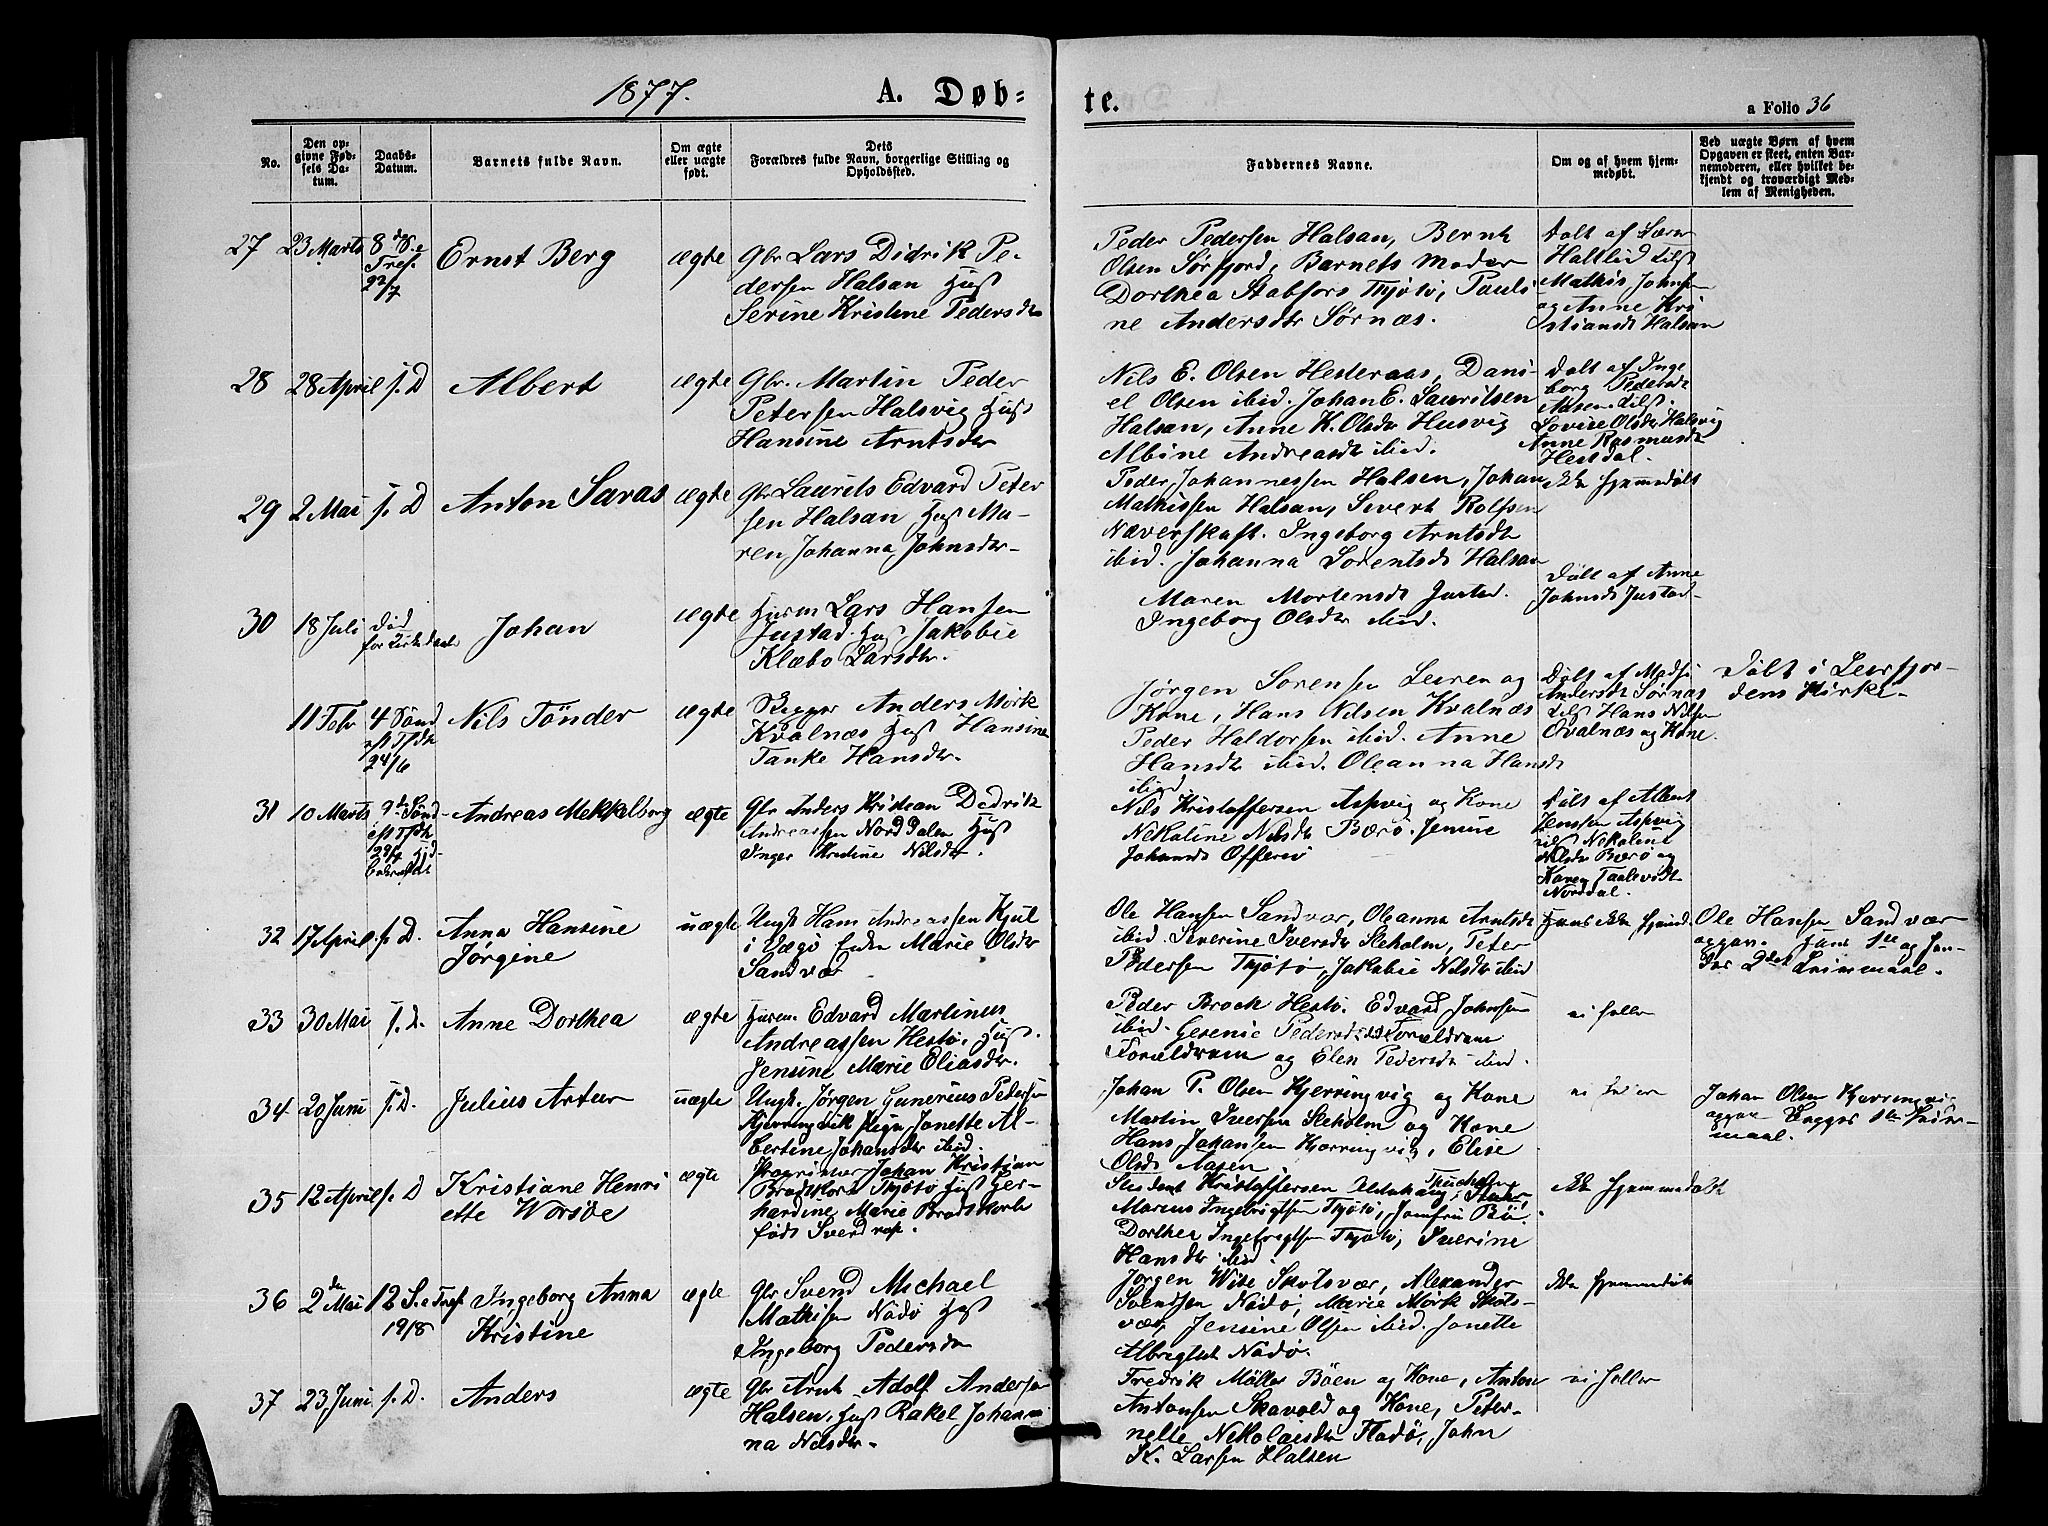 1877.
A. Døb=
te.
a Folio 36
No.
Den op-
givne Fød-
sels Da-
tum.
Daabs-
Datum.
Barnets fulde Navn.
Om ægte
eller uægte
født.
Dets
Forældres fulde Navn, borgerlige Stilling og
Opholdssted.
Faddernes Navne.
Om og af hvem hjem-
medøbt.
Ved uægte Børn af hvem
Opgaven er skeet, enten Bar-
nemoderen, eller hvilket be-
kjendt og troværdigt Med-
lem af Menigheden.
27
23 Marts
8de S. e
Tref.
22/7
Ernst Berg
ægte
Gbr Lars Didrik Pe-
dersen Halsan Hust
Serine Kristine Pedersdtr
Peder Pedersen Halsan, Bernt
Olsen Sørfjord, Barnets Moder
Dorthea Stabfors Thjøtø, Pauli
ne Andersdtr Sørnæs.
Døbt af
Mathis Johnsen
og Anne Kri
stiansdt Halsan
28
28 April
s. D
Albert
ægte
Gbr. Martin Peder
Petersen Halsvig Hust
Hansine Arntsdtr
Nils E. Olsen Hesteraas, Dani-
el Olsen ibid. Johan E. Lauritsen
Halsan, Anne K. Olsdtr Husvig
Albine Andreasdt ibid.
Døbt af Inge
borg Pedersdt
Aasen tilst.
Lovise Olsdtr Halsvig
Anne Rasmusdt
Hesdal.
29
2 Mai
s. D
Anton Savas
ægte
Gbr Laurits Edvard Peter
sen Halsan Hust Ma-
ren Johanna Johnsdtr
Peder Johannessen Halsen, Johan
Mathissen Halsan, Sivert Rolfsen
Næverskaft. Ingeborg Arntsdt
ibid. Johanna Lorentsdt Halsan
ikke hjemmedøbt
30
18 Juli
Død
før Kirkedaab
Johan
ægte
Husm Lars Hansen
Justad. Hust Jakobie
Klæbo Larsdtr.
Maren Mortensdt Justad.
Ingeborg Olsdtr ibid.
Døbt af Anne
Johnsdt Justad
11 Febr
4 Sønd
24/6
Nils Tönder
ægte
Anders Mörk
Kvalnæs Hust Hansine
Tanke Hansdtr.
Jørgen Sørensen Leiren og
Kone, Hans Nilsen Kvalnæs
Peder Haldorsen ibid. Anne
Hansdt ibid. Oleanna Hansdt
ibid
Døbt af Madsi
Andersdt Sørnæs
tilst Hans Nilsen
Qvalnæs og Kone.
Døbt i Leirfjor-
dens Kirke.
31
10 Marts
9de Sönd
29/7
Andreas Mekkelborg
ægte
Gbr Anders Kristian Dedrik
Andreassen Norddalen Hust
Inger Kredine Nilsdtr.
Nils Kristoffersen Aspvig og Kone
Nekoline Nilsdt Bærø. Jensine
Johansdt Offersø
Døbt af Albert
Jensen Aspvig
tilst Nekoline
Nilsdtr Bærø og
Karen Taalevsdt
Norddal.
32
17 April
s. D.
Anna Hansine
Jørgine
uægte
Ungk Hans Andreassen Kjul
i Vægø Enke Marie Olsdtr
Sandvær
Ole Hansen Sandvær, Oleanna Arntsdt
ibid. Severine Iversdtr Sleholm, Peter
Pedersen Thjøtø, Jakobie Nilsdt ibid
ikke hjemd.
Ole Hansen Sandvær
opgav.
Leiermaal.
33
30 Mai
s. d.
Anne Dorthea
ægte
Husm. Edvard Martinus
Andreassen Hestø. Hust.
Jensine Marie Eliasdtr.
Peder Brock Hestø. Edvard Johnsen
ibid. Gesenie Pedersdt
Toraldrem og Elen Pedersdt ibid.
ei heller
34
20 Juni
s. D.
Julius Artur
uægte
Ungk. Jørgen Gunerius Pedersen
Kjerringvik Pige Jonette Al-
bertine Johansdtr ibid
Johan P. Olsen Kjerringvig og Kone
Martin Iversen Sleholm og Kone
Hans Johansen Kjerringvig, Elise
Olsdt Aasen
Johan Olsen Kjerringvig
opgav Begges 1ste Leier-
maal.
35
12 April
s. D
Kristiane Henri
ette Worsöe
ægte
Johan Kristian
Brodtkorb Thjøtø Hust Ger-
hardine Marie Brodtkorb
født Sverdrup.
Student Kristoffersen
Marius Ingebrigtsen Thjøtø, Jomfru Bö
Dorthea Ingebrigtsen Thjøtø, Iverine
Hansdt ibid
ikke hjemmedøbt
36
2den
Mai
12 S. e Tref
19/8
Ingeborg Anna
Kristine
ægte
Gbr Svend Michael
Mathisen Nådø Hust
Ingeborg Pedersdtr
Jørgen Wise Skotsvær, Alexander
Svendsen Nådø, Marie Mørk Skots-
vær, Jensine Olsen ibid. Jonette
Albrigtsdt Nådø.
Ikke hjemmedøbt
37
23 Juni
s. D.
Anders
ægte
Gbr Arnt Adolf Andersen
Halsen, Hust Rakel Johan
na Nilsdtr.
Fredrik Møller Böen og Kone, Anton
Antonsen Skavold og Kone, Peter-
nelle Nikolaisdtr Flodø, John
K. Larsen Halsen
ei heller